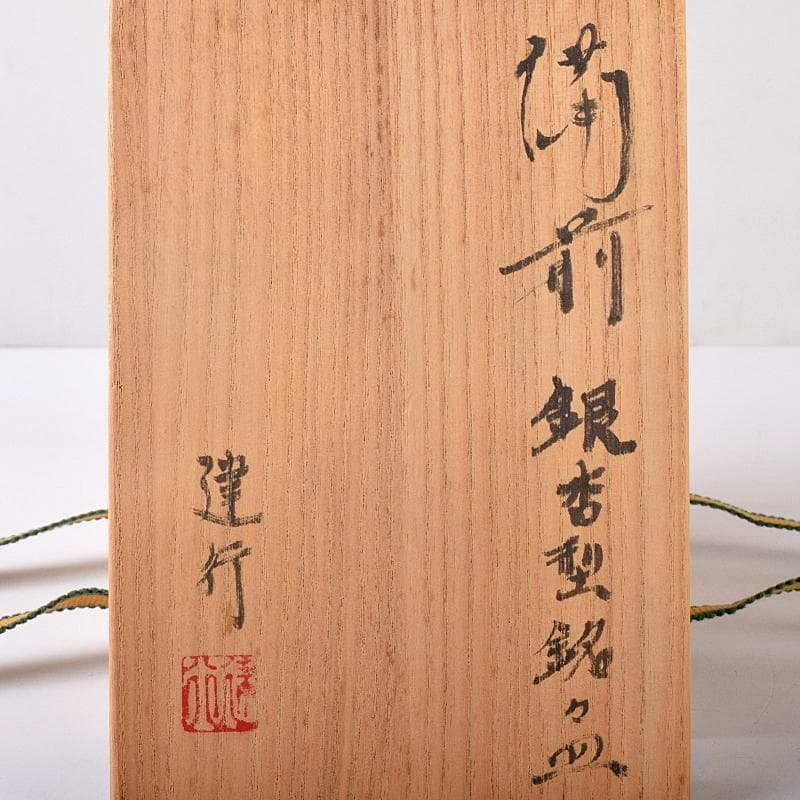 備前 銀杏型銘々皿
建行